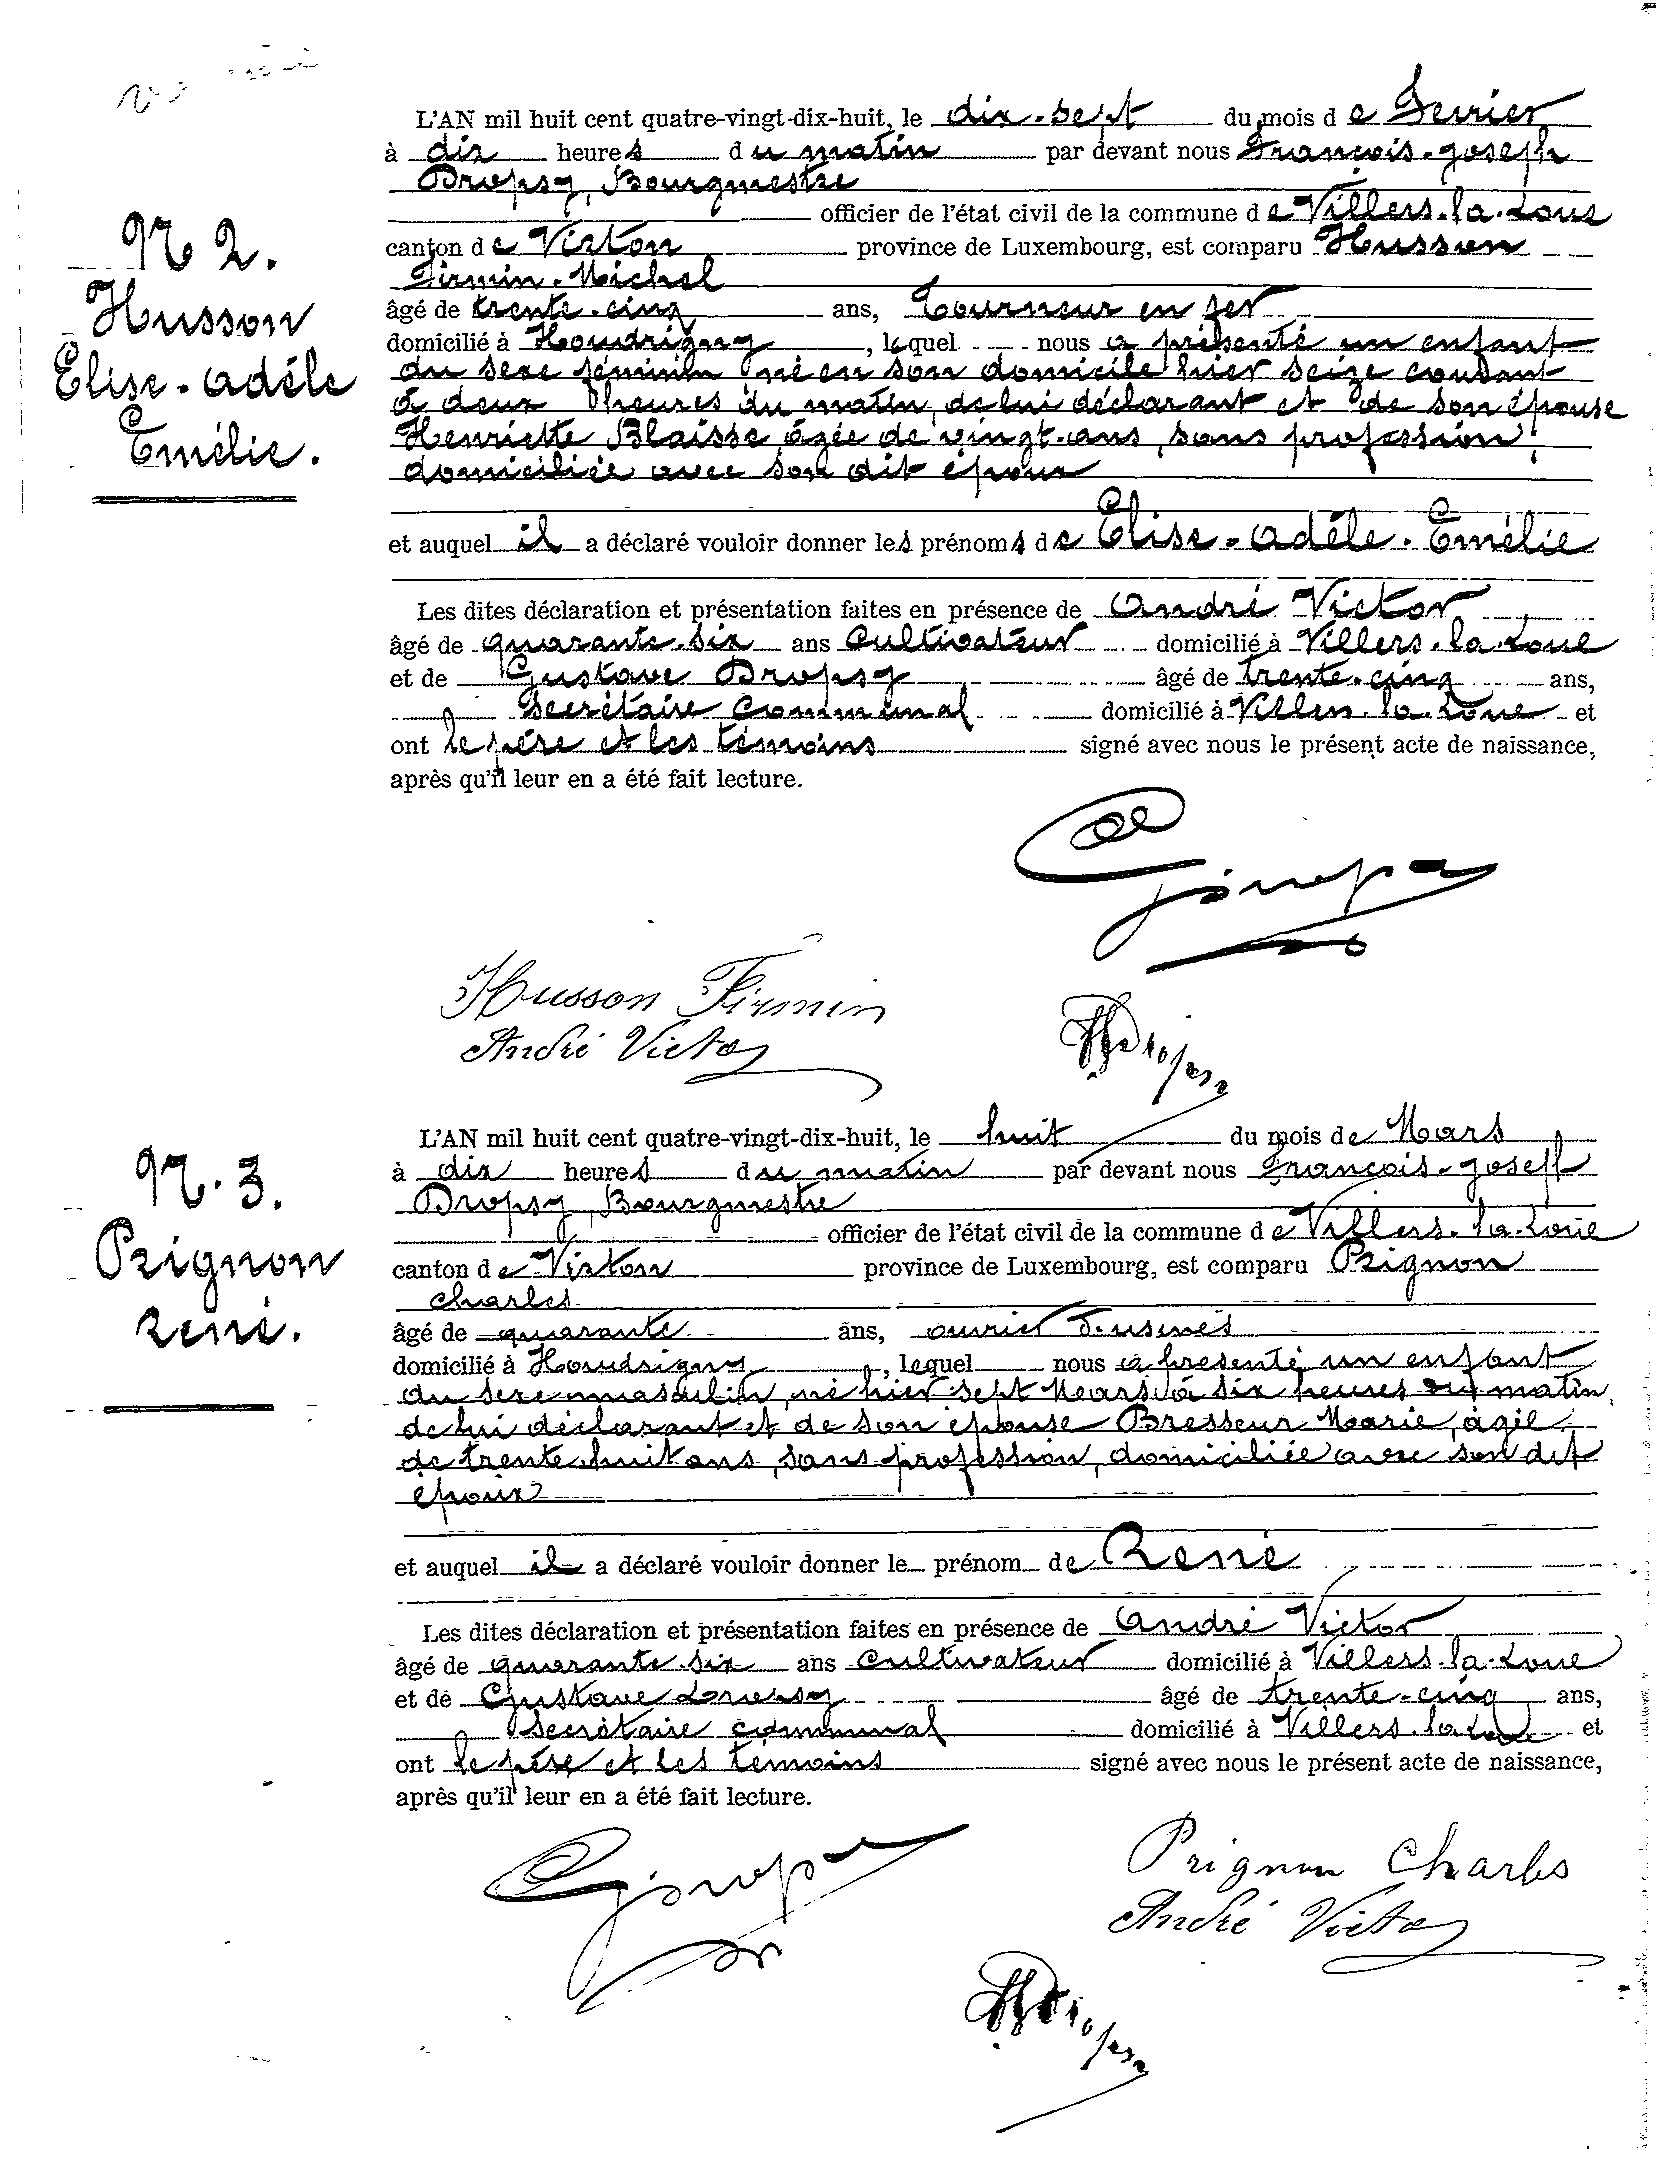 L'AN mil huit cent quatre-vingt-dix-huit, le dix-sept du mois de Fevrier
à dix heures du matin par devant nous François-Joseph
Dropsy, Bourgmestre
officier de l'état civil de la commune de Villers-la-Loue
N° 2.
canton de Virton province de Luxembourg, est comparu Husson
Firmin-Michel
Husson
âgé de trente-cinq ans, Tourneur en fer
domicilié à Houdrigny, lequel nous a présenté un enfant
Elise-Adèle
du sexe féminin né en son domicile hier seize courant
à deux heures du matin, de lui déclarant et de son épouse
Emélie.
Henriette Blaisse âgée de vingt-ans, sans profession,
domiciliée avec son dit époux
et auquel il a déclaré vouloir donner les prénoms de Elise-Adèle-Emélie
Les dites déclaration et présentation faites en présence de André Victor
âgé de quarante-six ans Cultivateur domicilié à Villers-la-Loue
et de Gustave Dropsy âgé de trente-cinq ans,
Secrétaire Communal domicilié à Villers-la-Loue et
ont le père et les témoins signé avec nous le présent acte de naissance,
après qu'il leur en a été fait lecture.
Husson Firmin
André Victor
L'AN mil huit cent quatre-vingt-dix-huit, le huit du mois de Mars
N° 3.
à dix heures du matin par devant nous François-Joseph
Dropsy, Bourgmestre
officier de l'état civil de la commune de Villers-la-Loue
Prignon
canton de Virton province de Luxembourg, est comparu Prignon
Charles
René.
âgé de quarante ans, ouvrier d'usines
domicilié à Houdrigny, lequel nous a présenté un enfant
du sexe masculin, né hier sept Mars à six heures du matin,
de lui déclarant et de son épouse Bresseur Marie, âgée
de trente-huit ans, sans profession, domiciliée avec son dit
époux
et auquel il a déclaré vouloir donner le prénom de René
Les dites déclaration et présentation faites en présence de André Victor
âgé de quarante-six ans Cultivateur domicilié à Villers-la-Loue
et de Gustave Dropsy âgé de trente-cinq ans,
Secrétaire communal domicilié à Villers-la-Loue et
ont le père et les témoins signé avec nous le présent acte de naissance,
après qu'il leur en a été fait lecture.
Prignon Charles
André Victor